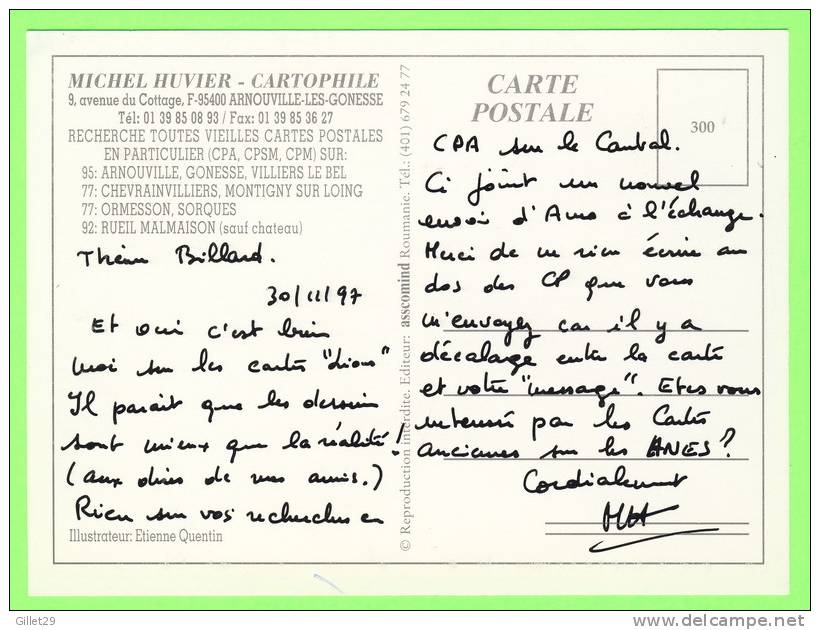 MICHEL HUVIER - CARTOPHILE
9, avenue du Cottage, F-95400 ARNOUVILLE-LES-GONESSE
Tél: 01 39 85 08 93 / Fax: 01 39 85 36 27
RECHERCHE TOUTES VIEILLES CARTES POSTALES
EN PARTICULIER (CPA, CPSM, CPM) SUR:
95: ARNOUVILLE, GONESSE, VILLIERS LE BEL
77: CHEVRAINVILLIERS, MONTIGNY SUR LOING
77: ORMESSON, SORQUES
92: RUEIL MALMAISON (sauf chateau)
Billard.
30/11/97
Et oui c'est bien
moi sur les cartes "Lions"
Il parait que les dessins
sont mieux que la réalité!
(aux dires de mes amis.)
Rien sur vos recherches en
Illustrateur: Etienne Quentin
© Reproduction interdite. Editeur: asscomind Roumanie. Tél.: (401) 679 24 77
CARTE
POSTALE
300
CPA sur le Cantal.
Ci joint un nouvel
envoi d'Anes à l'échange.
Merci de ne rien écrire au
dos des CP que vous
m'envoyez car il y a
décalage entre la carte
et votre "message". Etes vous
intéressé par les Cartes
anciennes sur les ANES?
Cordialement
Gillet29
www.delcampe.net